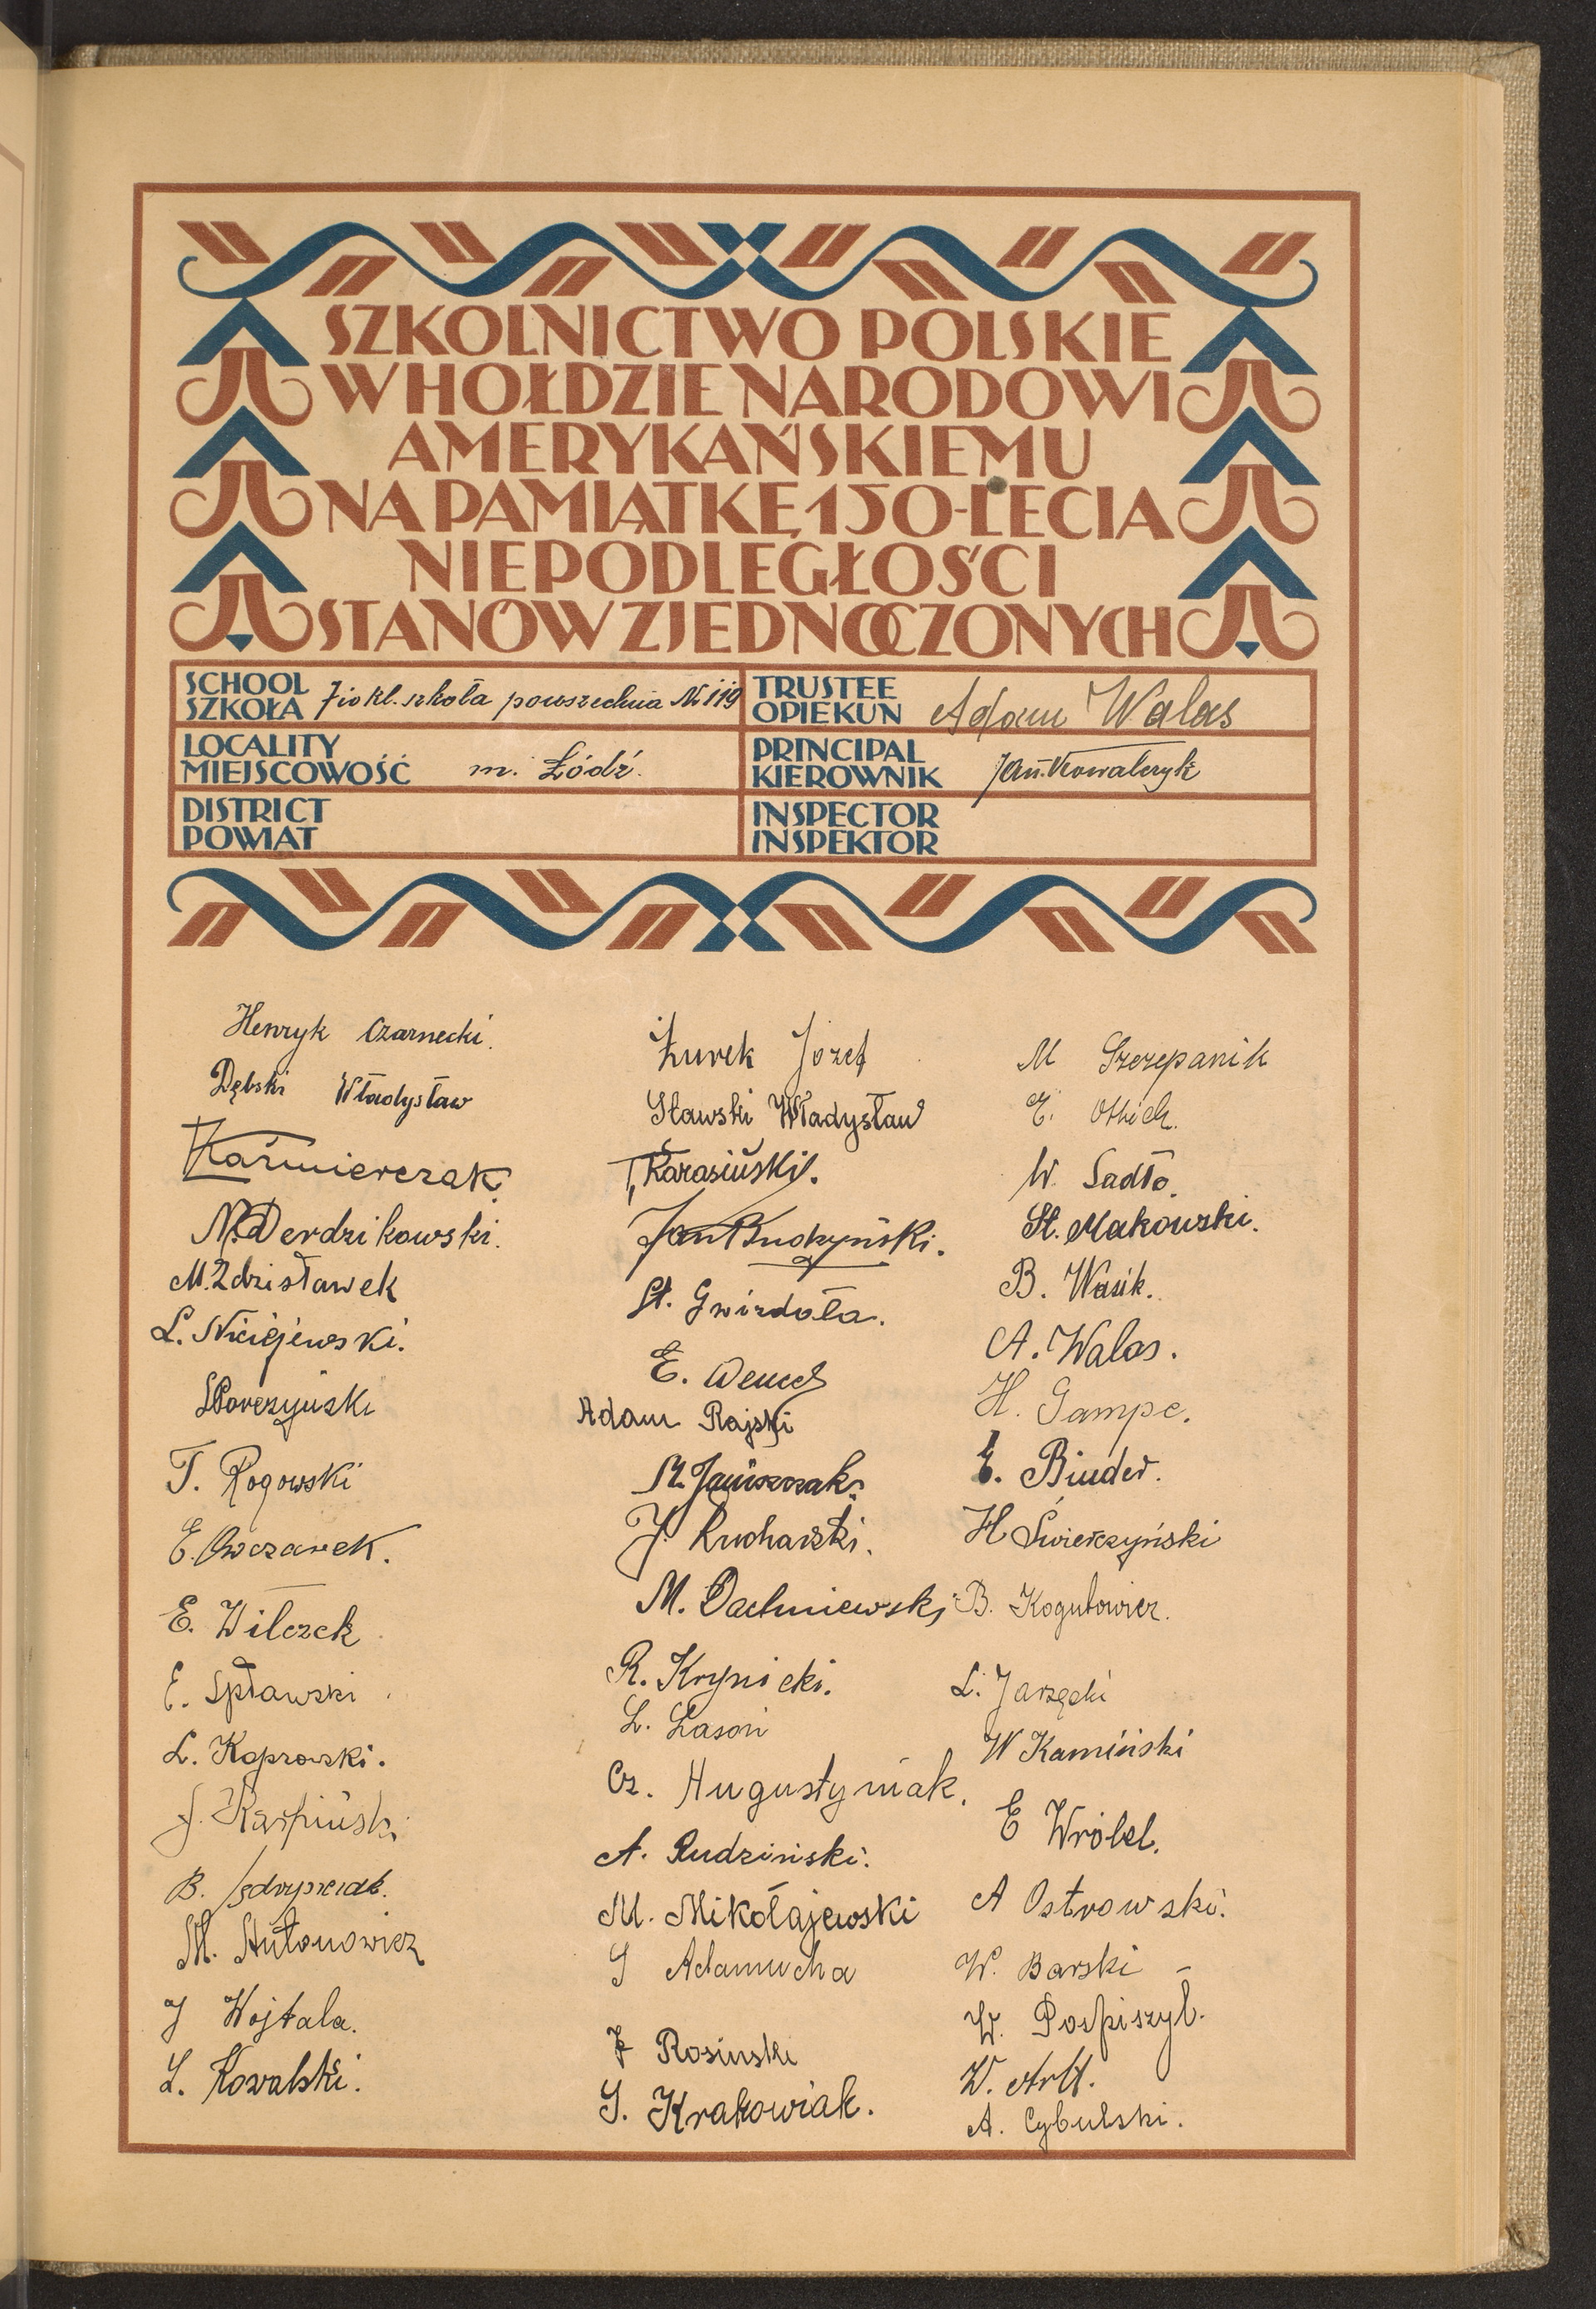 SZKOLNICTWO POLSKIE
W HOŁDZIE NARODOWI
AMERYKAŃSKIEMU
NA PAMIĄTKĘ 150-LECIA
NIEPODLEGŁOŚCI
STANÓW ZJEDNOCZONYCH
SCHOOL
SZKOŁA
7io kl. szkoła powszechna № 119
TRUSTEE
OPIEKUN
Adam Walas
LOCALITY
MIEJSCOWOŚĆ
m. Łódź.
PRINCIPAL
KIEROWNIK
Jan Kowalczyk
DISTRICT
POWIAT
INSPECTOR
INSPEKTOR
Henryk Czarnecki.
Dębski Władysław
Kaźmierczak.
N. Derdzikowski.
M. Zdzisławek
L. Niciejewski.
Porczyński
T. Rogowski
E. Owczarek.
E. Wilczek
E. Spławski
L. Koprowski.
J. Karpiński
B. Jędrzejczak.
M. Antonowicz
J Wojtala.
L. Kowalski.
Żurek Józef
Sławski Władysław
T. Karasiński.
Jan Budzyński.
St. Gwizdała.
E.
Adam Rajski
St. Janiszczak.
J. Kucharski.
M. Dachniewski
R. Krynicki.
L. Lasoń
Cz. Augustyniak.
A. Rudziński.
M. Mikołajewski
S Adamucha
F Rosinski
S. Krakowiak.
M Szczepanik
E. Ottich.
W. Sadło.
St. Makowski.
B. Wasik.
A. Walas.
H. Gampe.
E. Binder.
H Świerczyński
B. Kogutowicz.
L. Jarzęcki
W Kamiński
E Wróbel.
A Ostrowski.
W. Barski –
W. Pospiszyl.
W. Artt.
A. Cybulski.